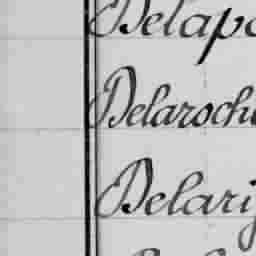 Delapo
Delaroche
Delarij